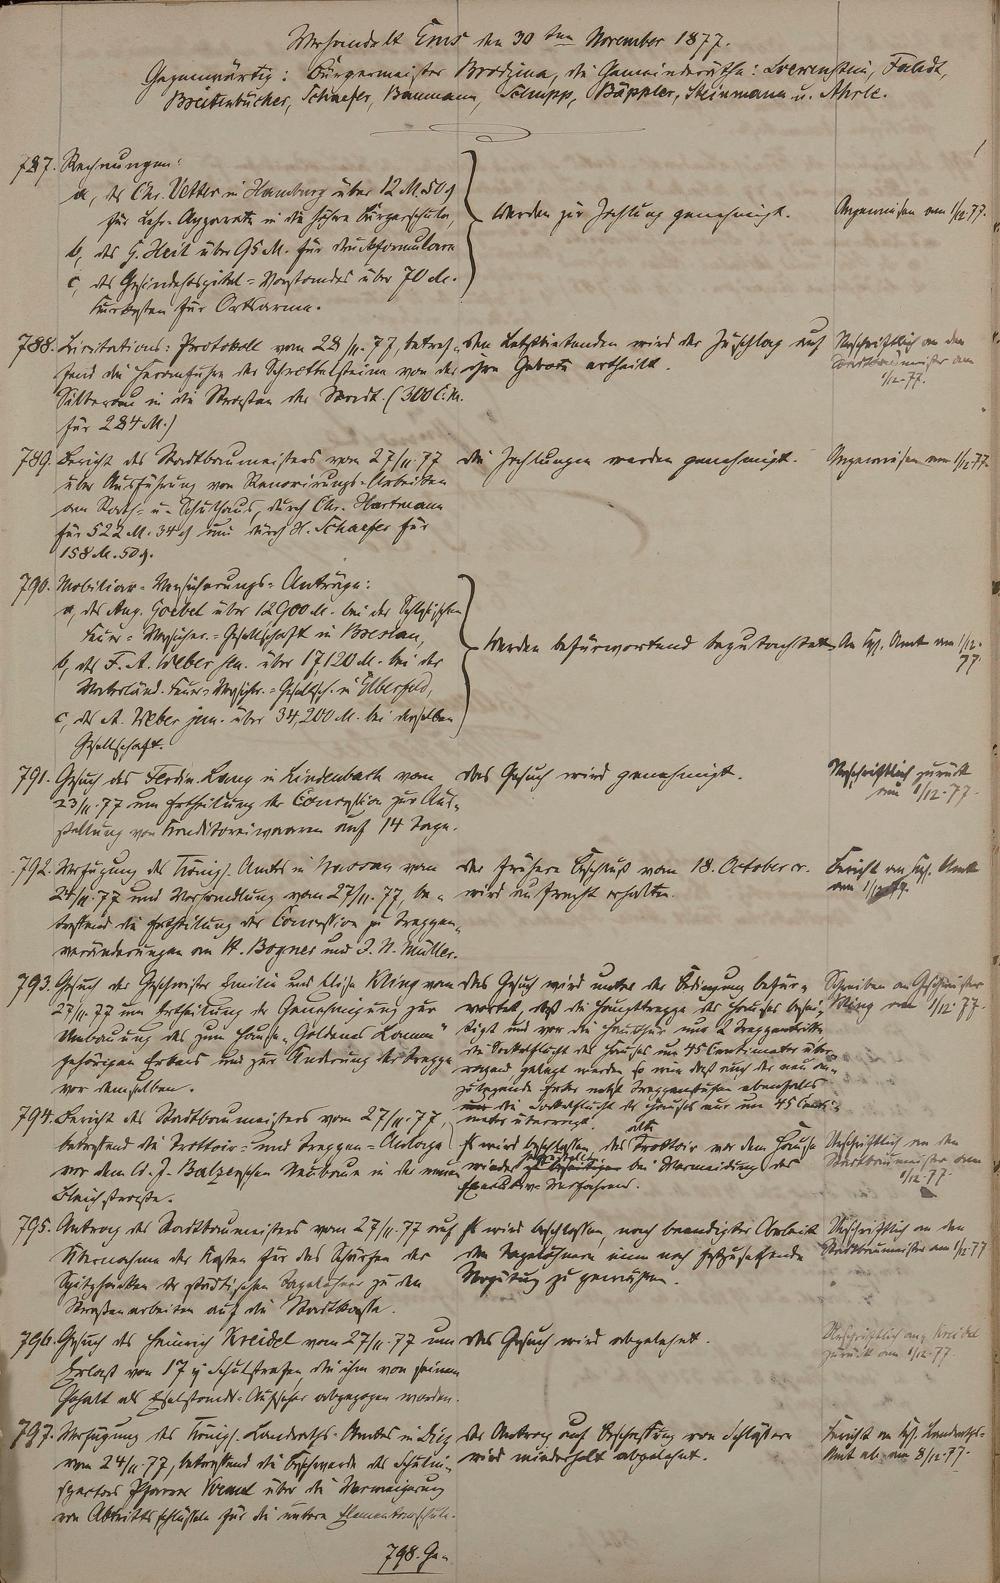 Verhandelt Ems den 30ten November 1877.
Gegenwärtig: Bürgermeister Brodzina, die Gemeinderäthe: Loewenstein, Faldt,
Breitenbücher, Schaefer, Baumann, Schupp, Bäppler, Steinmann u. Ahrle.
787. Rechnungen:
a, des Chr. Vetter in Hamburg über 12 M. 50 ₰
für Lehr-Apparate in die höhere Bürgerschule,
b, des G. Heil über 95 M. für Druckformulare
c, des Gesindehospital-Vorstandes über 70 M.
Kurkosten für Ortsarme.
Werden zur Zahlung genehmigt.
Angewiesen am 1/12.77.
788. Licitations-Protokoll vom 28/11.77, betref-
fend die Herrenfuhre der Schrottelsteine von der
Silberau in die Straßen der Stadt. (300 C.M.
für 284 M.)
den Letztbietenden wird der Zuschlag auf
ihre Gebote ertheilt.
Abschriftlich an den
Stadtbaumeister am
1/12.77.
789. Bericht des Stadtbaumeisters vom 27/11.77
über Ausführung von Renovirungs-Arbeiten
am Rath- u. Schulhaus, durch Chr. Hartmann
für 522 M. 34 ₰ und durch H. Schaefer für
158 M. 50 ₰.
die Zahlungen werden genehmigt.
Angewiesen am 1/12.77.
790. Mobiliar-Versicherungs-Anträge:
a, des Aug. Goebel über 12900 M. bei der Schlesischen
Feuer-Versicher.-Gesellschaft in Breslau,
b, des F. A. Weber sen. über 17,120 M. bei der
Vaterländ. Feuer-Versichr.-Gesellsch. in Elberfeld,
c, des A. Weber jun. über 34,200 M. bei derselben
Gesellschaft.
Werden befürwortend begutachtet.
An Kgl. Amt am 1/12.
77.
791. Gesuch des Ferdin. Lang in Lindenbach vom
23/11.77 um Ertheilung der Concession zur Aus-
stellung von Konditoreiwaaren auf 14 Tage.
das Gesuch wird genehmigt.
Abschriftlich zurück
am 1/12.77.
792. Verfügung des Königl. Amts in Nassau vom
24/11.77 und Verhandlung vom 27/11.77, be-
treffend die Ertheilung der Concession zu Treppen-
veränderungen an H. Bogner und J. N. Müller.
der frühere Beschluß vom 18. October cr.
wird aufrecht erhalten.
Bericht an Kgl. Amt
am 1/12.77.
793. Gesuch der Geschwister Emilie und Elise Kling vom
27/11.77 um Ertheilung der Genehmigung zur
Umbauung des zum Hause "Goldenes Lamm"
gehörigen Erkers und zur Änderung der Treppe
vor demselben.
das Gesuch wird unter der Bedingung befür-
wortet, daß die Haupttreppe des Hauses besei-
tigt und vor die Hausthür nur 2 Treppentritte
die Sockelflucht des Hauses um 45 Centimeter über-
ragend, gelegt werden so wie daß auch der neu an-
zulegende Erker nebst Treppenstufen ebenfalls
die Sockelflucht des Hauses nur um 45 Centi-
meter überragt.
Schreiben an Geschwister
Kling am 1/12.77.
794. Bericht des Stadtbaumeisters vom 27/11.77,
betreffend die Trottoir- und Treppen-Anlage
vor dem A. J. Balzer'schen Neubau in der neuen
Bleichstraße.
Es wird beschlossen, das alte Trottoir vor dem Hause
wieder bei Vermeidung des
Executiv-Verfahrens.
Abschriftlich an den
Stadtbaumeister am
1/12.77.
795. Antrag des Stadtbaumeisters vom 27/11.77 auf
Übernahme der Kosten für das Schärfen der
Spitzhacken der städtischen Tagelöhner zu den
Straßenarbeiten auf die Stadtkasse.
Es wird beschlossen, nach beendigter Arbeit
den Tagelöhnern eine noch festzusetzende
Vergütung zu gewähren.
Abschriftlich an den
Stadtbaumeister am 1/12.77
796. Gesuch des Heinrich Kreidel vom 27/11.77 um
Erlaß von 17 Schulstrafen, die ihm von seinem
Gehalt als Eselstands-Aufseher abgezogen worden.
das Gesuch wird abgelehnt.
Abschriftlich an Kreidel
zurück am 1/12.77.
797. Verfügung des Königl. Landraths-Amtes in Diez
vom 24/11.77, betreffend die Beschwerde des Schulin-
spectors Pfarrer Vömel über die Verweigerung
von Abtrittsschlüsseln für die untere Elementarschule.
der Antrag auf Beschaffung von Schlüsseln
wird wiederholt abgelehnt.
Bericht an Kgl. Landraths-
Amt ab am 8/12.77.
798. Ge-